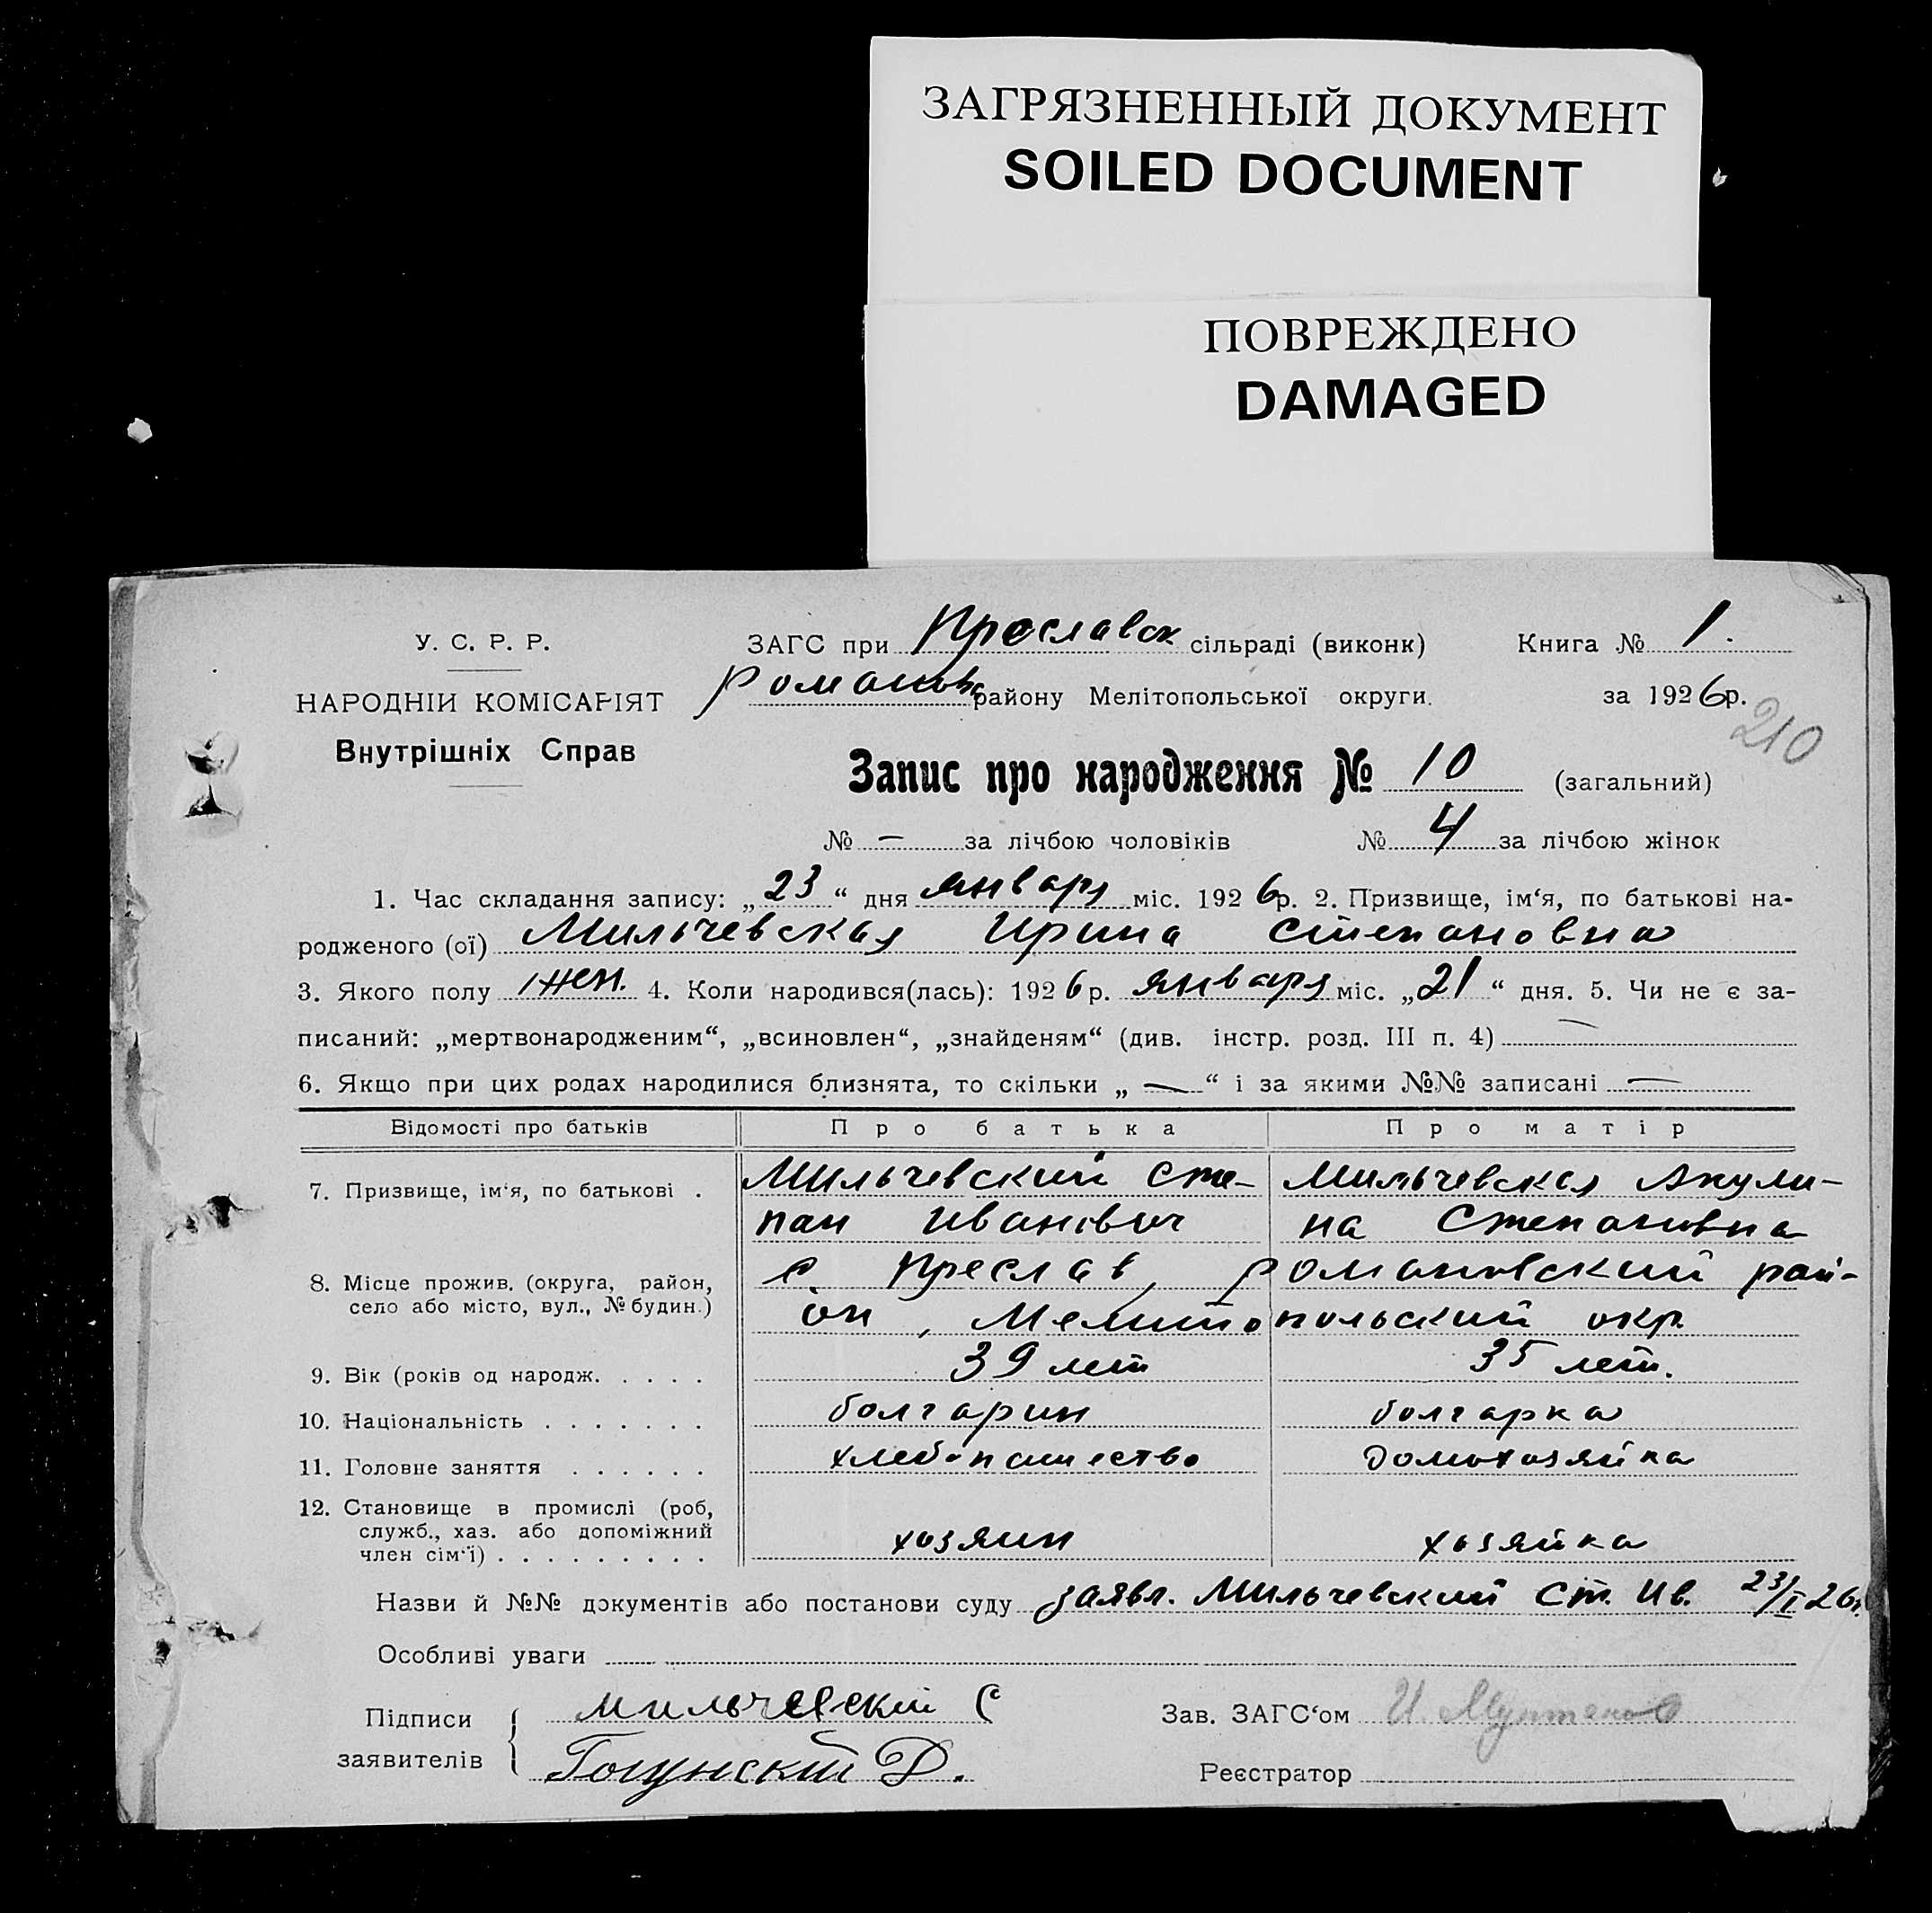 ЗАГРЯЗНЕННЫЙ ДОКУМЕНТ
SOILED DOCUMENT
ПОВРЕЖДЕНО
DAMAGED
У. С. Р. Р.
НАРОДНІЙ КОМІСАРІЯТ
Внутрішніх Справ
ЗАГС при Преславск сільраді (виконк) Книга № 1.
Романовс району Мелітопольської округи. за 1926р.
210
Запис про народження № 10 (загальний)
№ — за лічбою чоловіків № 4 за лічбою жінок
1. Час складання запису: „23“ дня января міс. 1926р. 2. Призвище, ім‘я, по батькові на-
родженого (ої) Мильчевская Ирина Степановна
3. Якого полу жен. 4. Коли народився(лась): 1926р. января міс. „21“ дня. 5. Чи не є за-
писаний: „мертвонародженим“, „всиновлен“, „знайденям“ (див. інстр. розд. III п. 4) —
6. Якщо при цих родах народилися близнята, то скільки „—“ і за якими №№ записані —
Відомості про батьків Про батька Про матір
7. Призвище, ім‘я, по батькові . Мильчевский Сте- Мильчевская Акули-
пан Иванович на Степановна
8. Місце прожив. (округа, район, с. Преслав, Романовский рай-
село або місто, вул., № будин.) он, Мелитопольский окр.
9. Вік (років од народж. . . . . 39 лет 35 лет.
10. Національність . . . . . . . болгарин болгарка
11. Головне заняття . . . . . . хлебопашество домохозяйка
12. Становище в промислі (роб,
служб., хаз. або допоміжний
член сім‘ї) . . . . . . . . . хозяин хозяйка
Назви й №№ документів або постанови суду заявл. Мильчевский Ст. Ив. 23/I 26г.
Особливі уваги
Підписи Мильчевскій С Зав. ЗАГС‘ом И.
заявителів Д.
Реєстратор